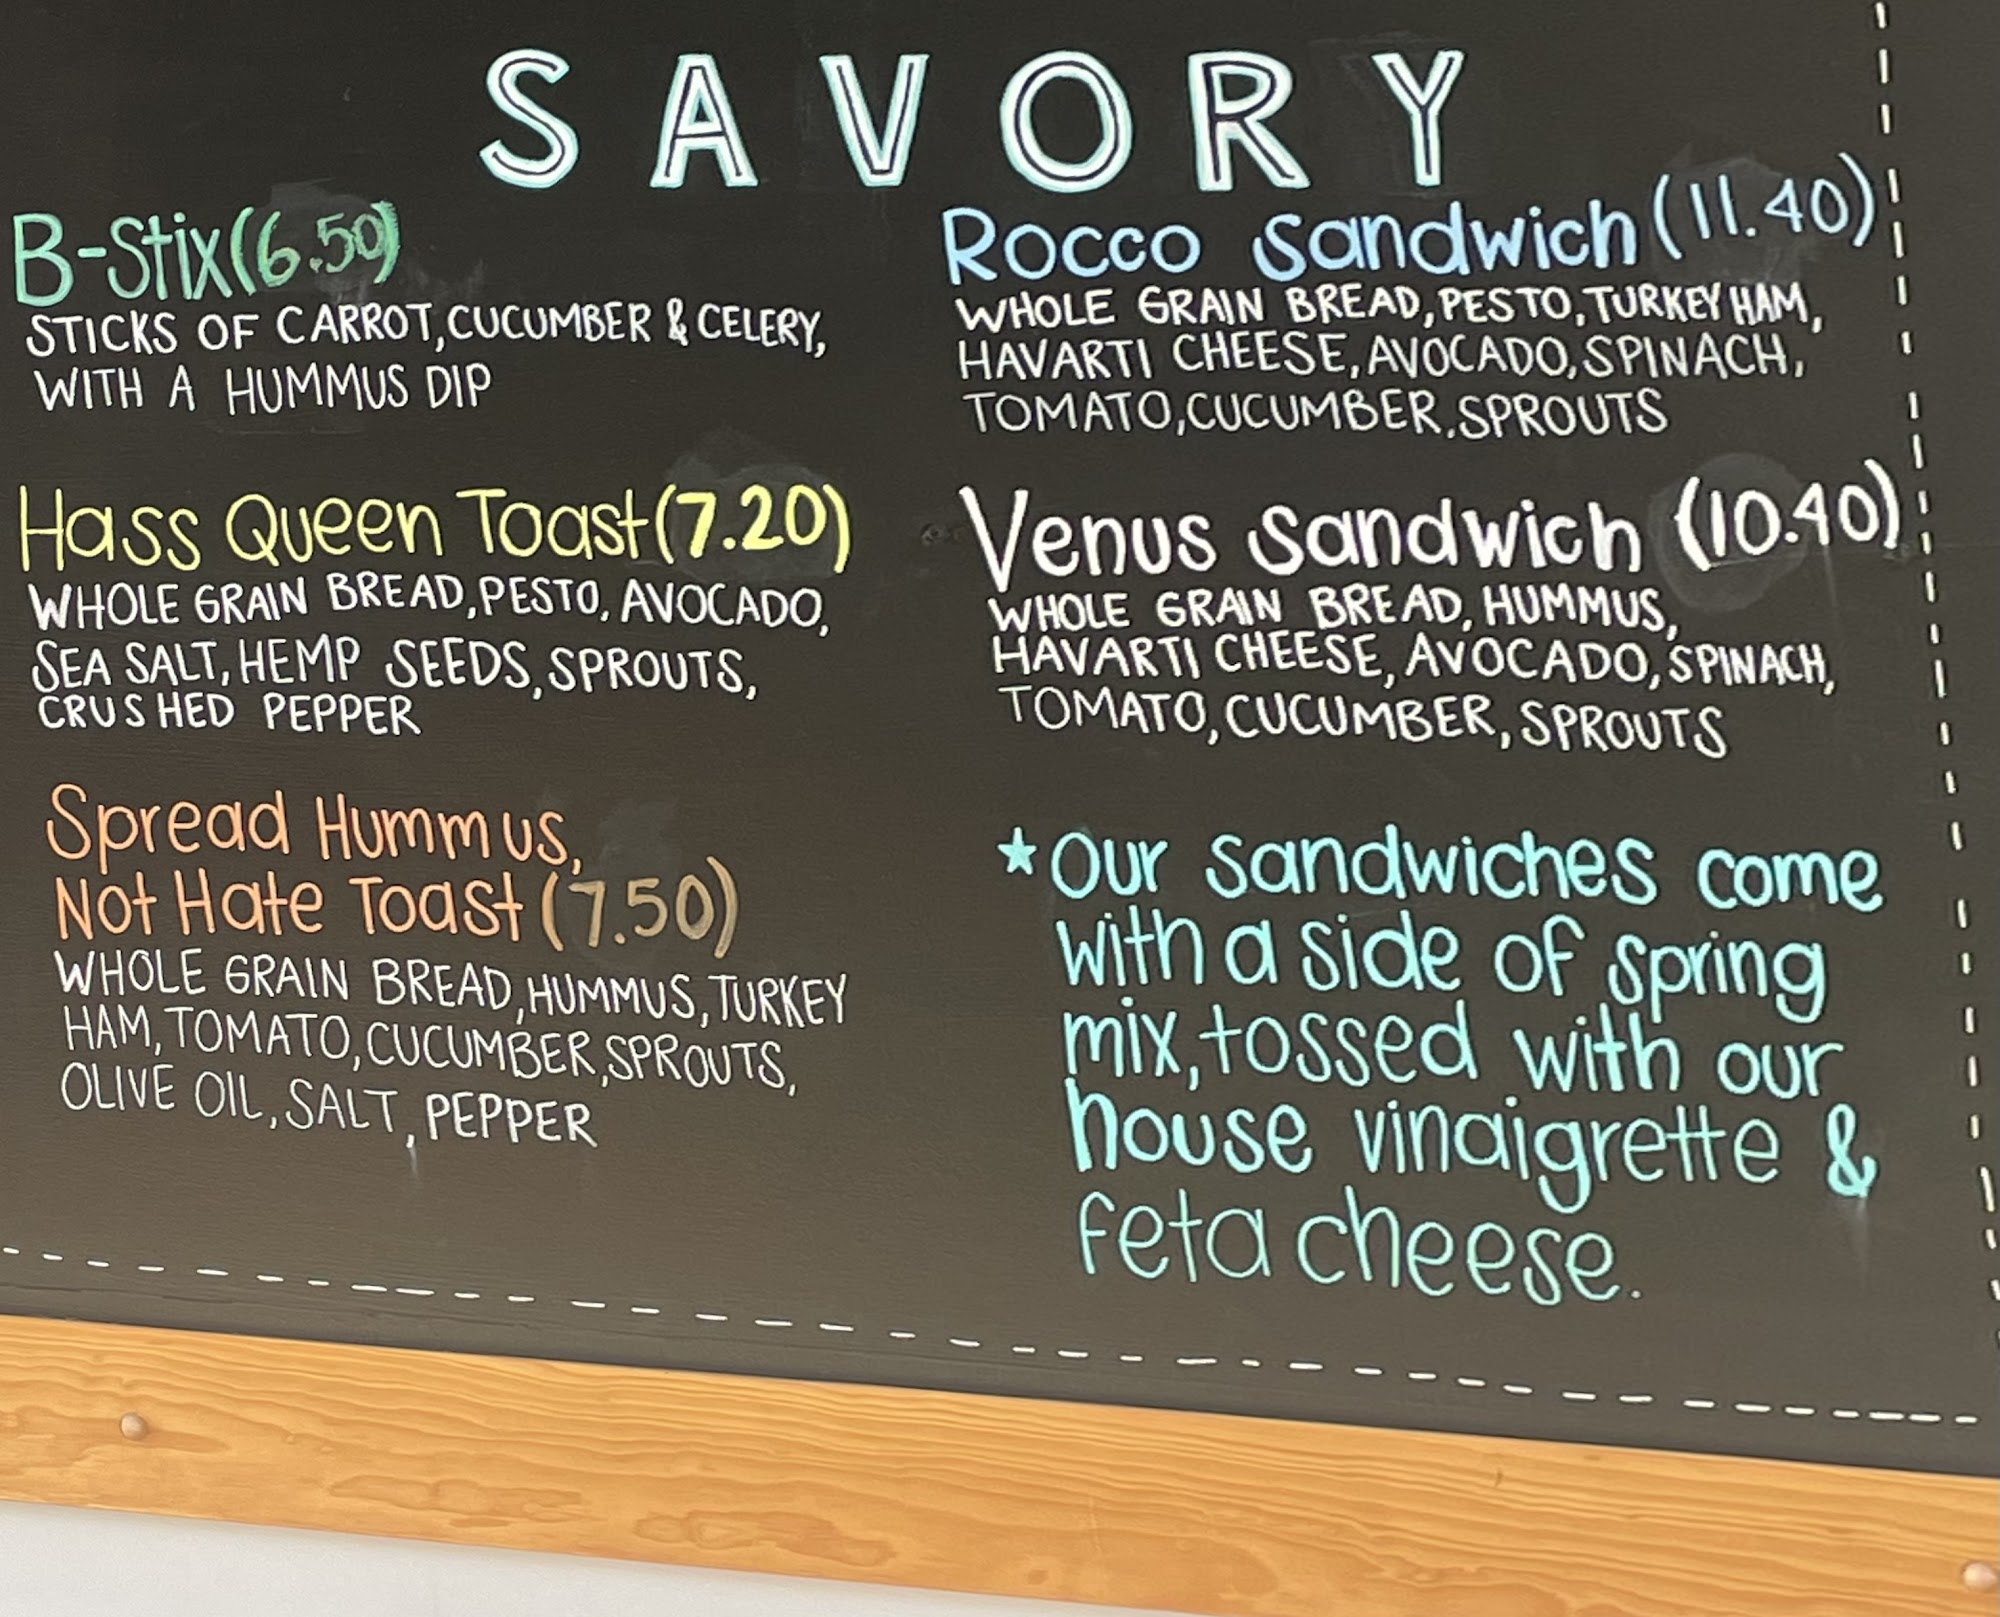 SAVORY
B-Stix(6.50)
STICKS OF CARROT,CUCUMBER & CELERY,
WITH A HUMMUS DIP
Hass Queen Toast(7.20)
WHOLE GRAIN BREAD,PESTO, AVOCADO,
SEA SALT, HEMP SEEDS, SPROUTS,
CRUSHED PEPPER
Spread Hummus,
Not Hate Toast (7.50)
WHOLE GRAIN BREAD, HUMMUS, TURKEY
HAM, TOMATO, CUCUMBER, SPROUTS,
OLIVE OIL, SALT, PEPPER
Rocco Sandwich (11.40)
WHOLE GRAIN BREAD, PESTO, TURKEY HAM,
HAVARTI CHEESE, AVOCADO, SPINACH,
TOMATO, CUCUMBER, SPROUTS
Venus Sandwich (10.40)
WHOLE GRAIN BREAD, HUMMUS,
HAVARTI CHEESE, AVOCADO, SPINACH,
TOMATO, CUCUMBER, SPROUTS
★ Our sandwiches come
with a side of spring
mix, tossed with our
house vinaigrette &
feta cheese.